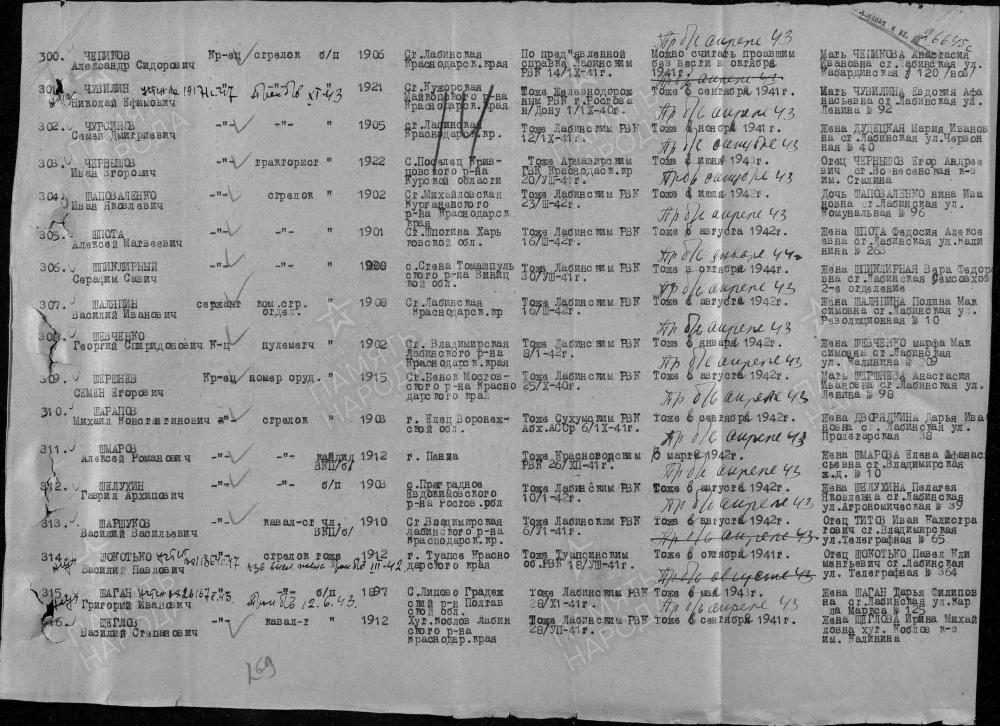 26645с
Пр б/с апреле 43
300. ЧЕПИКОВ Кр-ец стрелок б/п 1906 Ст.Лабинская По пред"явленной Можно считать пропавшим Мать ЧЕПИКОВА Анастасия
Александр Сидорович Краснодарск.края справка Лабинским без вести в октябре Ивановна ст.Лабинская ул.
РВК 14/IX-41г. 1941г. Кабардинская № 120
301. ЧУВИЛИН 1921 Ст.Кужорская Тоже Железнодорож Тоже в сентябре 1941г. Мать ЧУВИЛИНА Евдокия Афа
Николай Ефимович Майкопского р-на ным РВК г.Ростова насьевна ст.Лабинская ул.
Краснодарск.края н/Дону 1/IX-40г. Пр б/с апреле 43 Ленина № 92
302. ЧУРСИНОВ -"- -"- " 1905 ст.Лабинская Тоже Лабинским РВК Тоже в ноябре 1941г. Жена ДУДЕЦКАЯ Мария Иванов
Семен Дмитриевич Краснодарск.кр. 12/IX-41г. на ст.Лабинская ул.Червон
ная № 40
303. ЧЕРНЫШОВ -"- тракторист " 1922 С.Поселец Крив- Тоже Армавирским Тоже в июне 1943г. Отец ЧЕРНЫШОВ Егор Андрее
Иван Егорович цовского р-на ГВК Краснодарск.кр вич ст.Вознесенская к-з
Курской области 20/УШ-41г. им. Сталина
304. ШАПОВАЛЕНКО стрелок " 1902 Ст.Михайловская Тоже Лабинским РВК Тоже в июле 1942г. Дочь ШАПОВАЛЕНКО нина Ива
Иван Яковлевич Курганенского 23/Ш-42г. новна ст.Лабинская ул.
р-на Краснодарск. Пр б/с апреле 43 Комунальная № 96
края
305. ШПОТА -"- -"- " 1901 Ст.Шпогина Харь Тоже Лабинским РВК Тоже в августа 1942г. Жена ШПОТА Федосия Алексе
Алексей Матвеевич ковской обл. 16/Ш-42г. евна ст.Лабинская ул.Кали
Пр б/с январе 44г нина № 263
306. ШПИКЛИРНЫЙ -"- -"- " с.Стена Томашпуль Тоже Лабинским РВК Тоже в октябре 1944г. Жена ШПИКЛИРНАЯ Вера Федор
Серафим Савич ского р-на Виниц 30/УШ-41г. вна ст.Лабинская Семсовхоз
кой обл. Пр б/с апреле 43 2-е отделение
307. ШАЛЯПИН сержант ком.стр. " 1908 Ст.Лабинская Тоже Лабинским РВК Тоже в августа 1942г. Жена ШАЛЯПИНА Полина Мак
Василий Иванович отдел. Краснодарск.кр 16/Ш-42г. симовна ст.Лабинская ул.
Пр б/с апреле 43 Революционная № 10
308. ШЕВЧЕНКО
Георгий Спиридонович К-ц пулеметч " 1902 Ст. Владимирская Тоже Лабинским РВК Тоже в января 1942г. Жена ШЕВЧЕНКО марфа Мак
Лабинского р-на 8/1-42г. симовна ст.Лабинская
Краснодарск.края Пр б/с апреле 43 ул. Калинина № 709
309. ШЕРШНЕВ Кр-ец номер оруд. " 1915 Ст.Бенок Мостов- Тоже Лабинским РВК Тоже в августа 1942г. Мать ШЕРШНЕВА Анастасия
Семен Егорович ского р-на Красно 25/Х-40г. Ивановна ст.Лабинская ул.
дарского края Пр б/с апреле 43 Ленина № 98
310. ШАРАПОВ
Михаил Константинович -"- стрелок 1903 г. Елец Воронеж- Тоже Сухумским РВК Тоже в сентября 1942г. Жена ДВОРЯДКИНА Дарья Ива
ской обл. Абх.АССр 6/IX-41г. новна ст. Лабинская ул.
Пр б/с апреле 43 Пролетарская 38
311. ШМАРОВ
Алексей Романович -"- -"- кандид 1912 г. Пенза Тоже Красноводским В марте 1942г. Жена ШМАРОВА Елена Афанас
ВКП/б/ РВК 26/ХП-41г. сьевна ст.Владимирская
Пр б/с апреле 43 ж.д. № 10
312. ШЕЛУХИН -"- -"- б/п 1903 с.Преградное Тоже Лабинским РВК Тоже в августа 1942г. Жена ШЕЛУХИНА Пелагея
Гаврил Архипович Евдокимовского 10/1-42г. Яковлевна ст.Лабинская
р-на Ростов.обл Пр б/с апреле 43 ул.Агрономическая № 39
313. ШАРШУКОВ -"- кавал-ст чл. 1910 Ст.Владимирская Тоже Лабинским РВК Тоже в августа 1942г. Отец ТИТОВ Иван Калистра
Василий Васильевич ВКП/б/ Лабинского р-на 6/У1-41г. тович ст.Владимирская
Краснодарск.кр. Пр б/с апреле 43 ул.Телеграфная № 65
314. ШОКОТЬКО стрелок тоже 1912 г. Туапсе Красно Тоже Туапсинским Тоже в октября 1941г. Отец ШОКОТЬКО Павел Кли
Василий Павлович дарского края об.РВК 18/УШ-41г. ментьевич ст.Лабинская
Пр б/с августе 43 ул. Телеграфная № 364
315. ШАГАН -"- б/п 1897 С.Липово Градеж Тоже Лабинским РВК Тоже в мая 1943г. Жена ШАГАН Дарья Филипов
Григорий Иванович Приб в 12.6.43. ский р-н Полтав 28/Х1-41г. на ст.Лабинская ул.Кар
ской обл. Пр б/с апреле 43 ла Маркса № 125
316. ЩЕГЛОВ -"- кавал-т 1912 Хут.Коблов Лабин Тоже Лабинским РВК Тоже в сентября 1941г. Жена ЩЕГЛОВА Ирина Михай
Василий Степанович ского р-на 28/УП-41г. ловна хут. Коблов к-з
Краснодар.края им. Калинина
269
ПАМЯТЬ НАРОДА